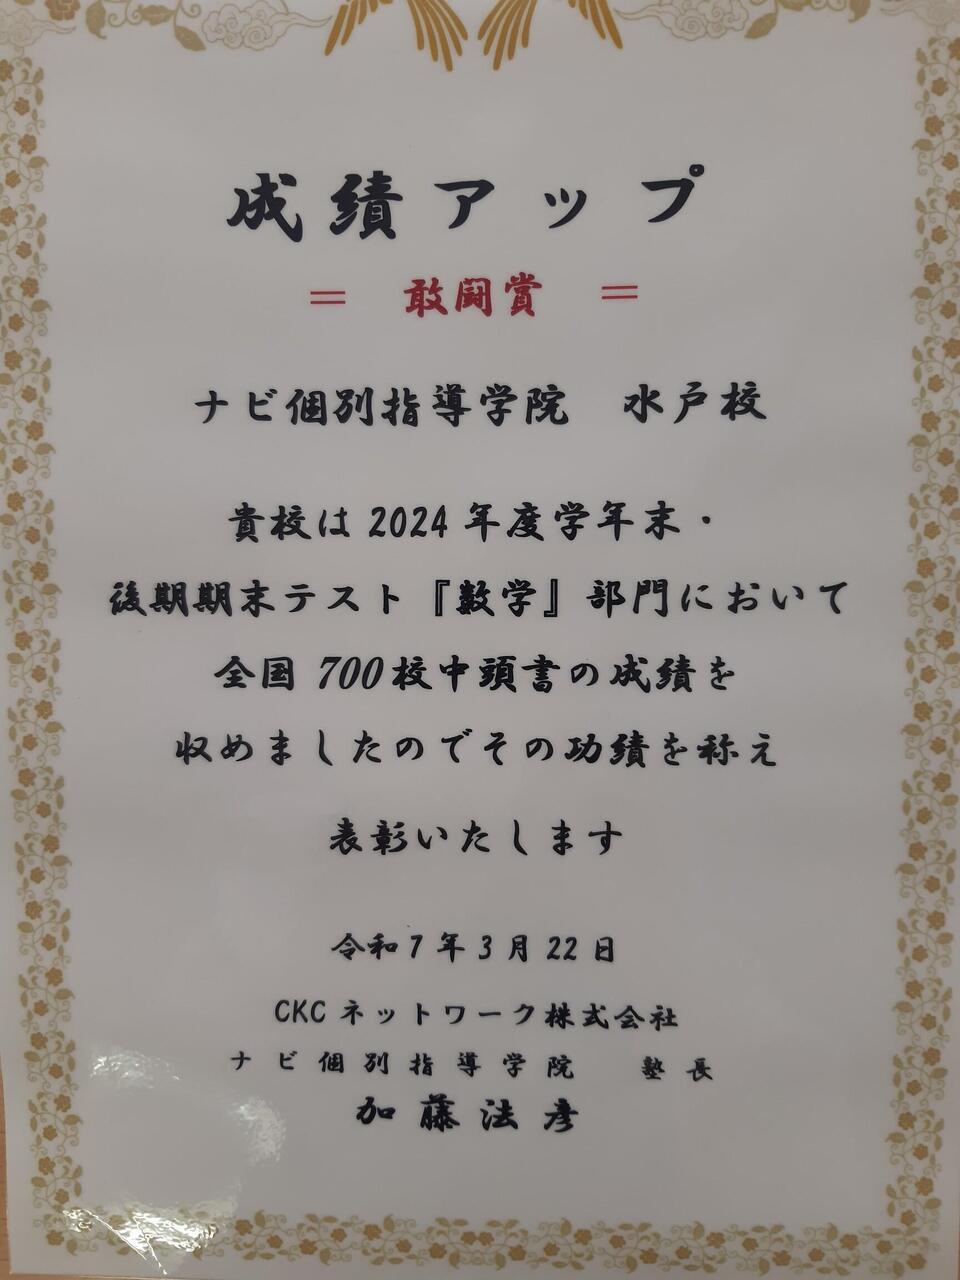 成績アップ
＝　敢闘賞　＝
ナビ個別指導学院　水戸校
貴校は2024年度学年末・
後期期末テスト『数学』部門において
全国700校中頭書の成績を
収めましたのでその功績を称え
表彰いたします
令和7年3月22日
CKCネットワーク株式会社
ナビ個別指導学院　塾長
加藤法彦